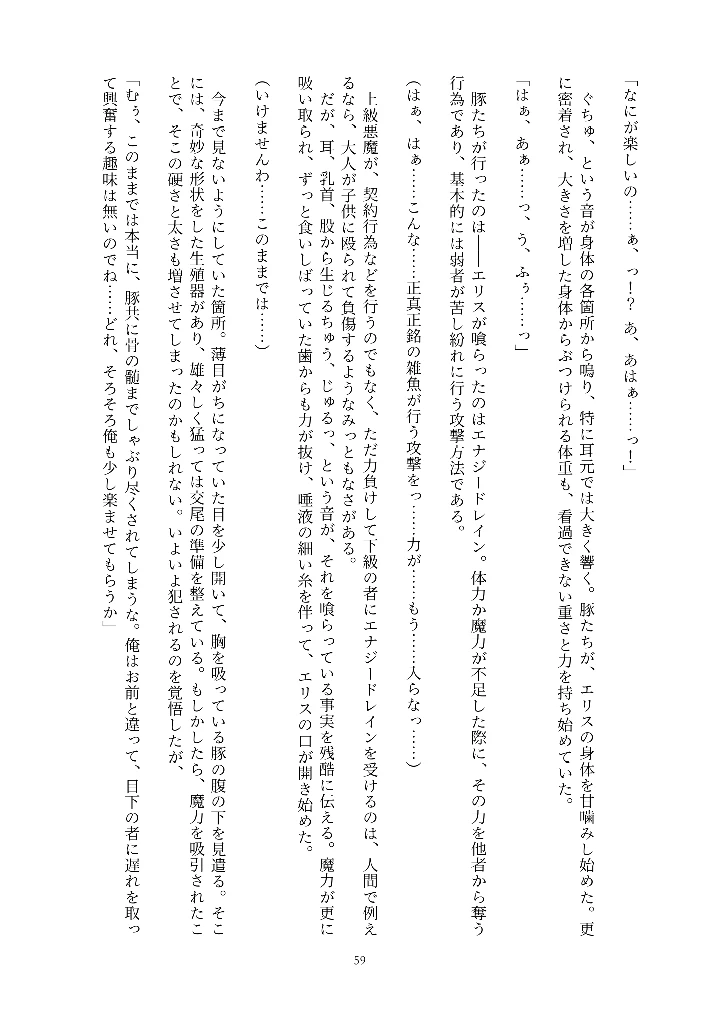 「なにが楽しいの……ぁ、っ！？ あ、あはぁ……っ！」
ぐちゅ、という音が身体の各箇所から鳴り、特に耳元では大きく響く。豚たちが、エリスの身体を甘噛みし始めた。更
に密着され、大きさを増した身体からぶつけられる体重も、看過できない重さと力を持ち始めていた。
「はぁ、あぁ……っ、う、ふぅ……っ」
豚たちが行ったのは――エリスが喰らったのはエナジードレイン。体力か魔力が不足した際に、その力を他者から奪う
行為であり、基本的には弱者が苦し紛れに行う攻撃方法である。
（はぁ、はぁ……こんな……正真正銘の雑魚が行う攻撃をっ……力が……もう……入らなっ……）
上級悪魔が、契約行為などを行うのでもなく、ただ力負けして下級の者にエナジードレインを受けるのは、人間で例え
るなら、大人が子供に殴られて負傷するようなみっともなさがある。
だが、耳、乳首、股から生じるちゅう、じゅるっ、という音が、それを喰らっている事実を残酷に伝える。魔力が更に
吸い取られ、ずっと食いしばっていた歯からも力が抜け、唾液の細い糸を伴って、エリスの口が開き始めた。
（いけませんわ……このままでは……）
今まで見ないようにしていた箇所。薄目がちになっていた目を少し開いて、胸を吸っている豚の腹の下を見遣る。そこ
には、奇妙な形状をした生殖器があり、雄々しく猛っては交尾の準備を整えている。もしかしたら、魔力を吸引されたこ
とで、そこの硬さと太さも増させてしまったのかもしれない。いよいよ犯されるのを覚悟したが、
「むぅ、このままでは本当に、豚共に骨の髄までしゃぶり尽くされてしまうな。俺はお前と違って、目下の者に遅れを取っ
て興奮する趣味は無いのでね……どれ、そろそろ俺も少し楽ませてもらうか」
59